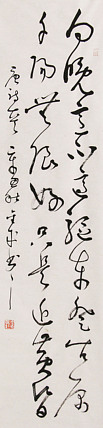 向晚意不適驅車登古原
夕陽無限好只是近黃昏
唐詩